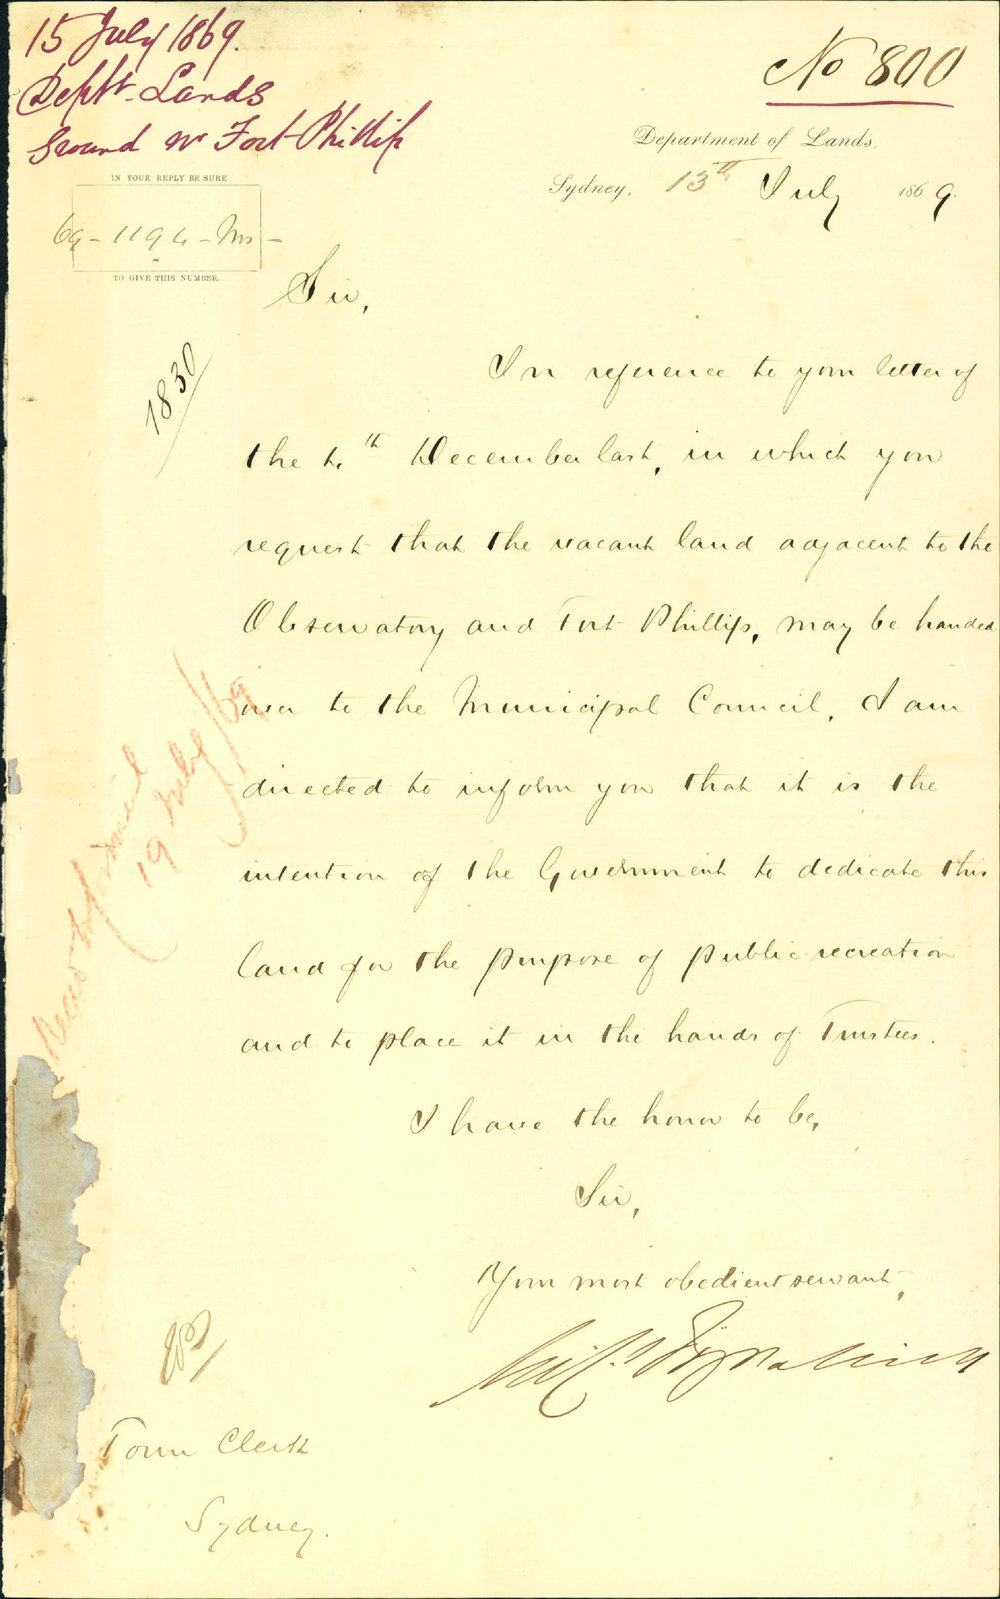 15 July 1869.
Deptt. Lands
Ground nr Fort Phillip
No 800
Department of Lands.
Sydney, 13th July 1869.
IN YOUR REPLY BE SURE
69-1194-Ms-
TO GIVE THIS NUMBER.
Sir,
1830
In reference to your letter of
the 4th December last, in which you
request that the vacant land adjacent to the
Observatory and Fort Phillip, may be handed
over to the Municipal Council, I am
directed to inform you that it is the
intention of the Government to dedicate this
land for the purpose of public recreation
and to place it in the hands of Trustees.
19 July/69
I have the honor to be,
Sir,
Your most obedient servant,
Town Clerk
Sydney.